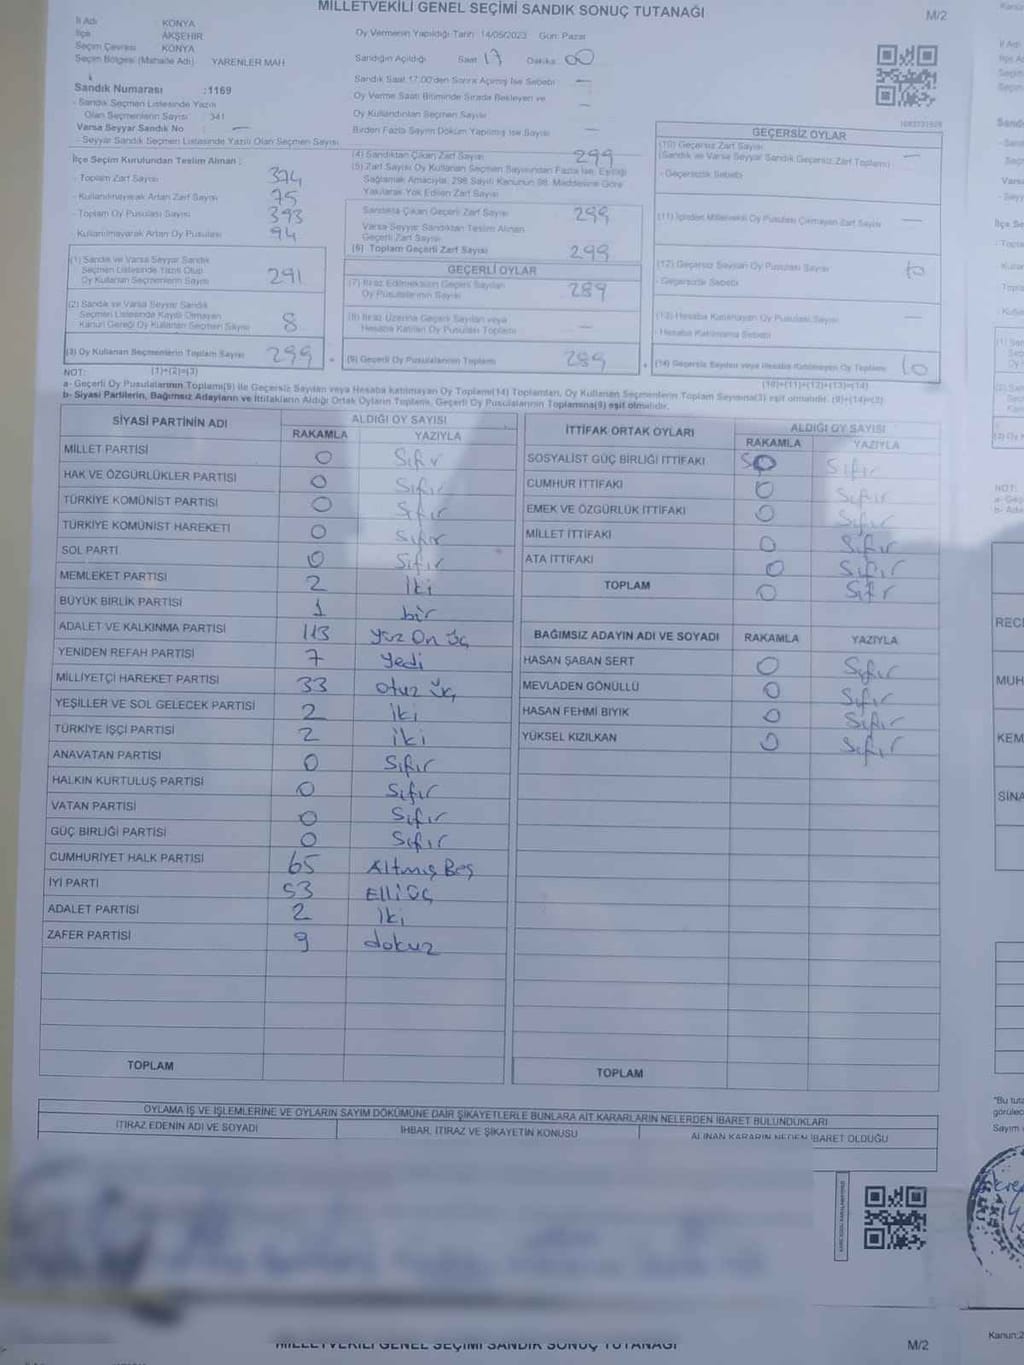 MİLLETVEKİLİ GENEL SEÇİMİ SANDIK SONUÇ TUTANAĞI
M/2
İl Adı KONYA
İlçe AKŞEHİR
Seçim Çevresi KONYA
Seçim Bölgesi (Mahalle Adı) YARENLER MAH
Sandık Numarası :1169
- Sandık Seçmen Listesinde Yazılı
Olan Seçmenlerin Sayısı 341
Varsa Seyyar Sandık No —
- Seyyar Sandık Seçmen Listesinde Yazılı Olan Seçmen Sayısı
Oy Vermenin Yapıldığı Tarih 14/05/2023 Gün: Pazar
Sandığın Açıldığı Saat 17 Dakika 00
Sandık Saat 17:00'den Sonra Açılmış İse Sebebi —
Oy Verme Saati Bitiminde Sırada Bekleyen ve
Oy Kullandırılan Seçmen Sayısı —
Birden Fazla Sayım Döküm Yapılmış İse Sayısı —
İlçe Seçim Kurulundan Teslim Alınan :
- Toplam Zarf Sayısı 374
- Kullanılmayarak Artan Zarf Sayısı 75
- Toplam Oy Pusulası Sayısı 393
- Kullanılmayarak Artan Oy Pusulası 94
(1) Sandık ve Varsa Seyyar Sandık
Seçmen Listesinde Yazılı Olup
Oy Kullanan Seçmenlerin Sayısı 291
(2) Sandık ve Varsa Seyyar Sandık
Seçmen Listesinde Kayıtlı Olmayan
Kanun Gereği Oy Kullanan Seçmen Sayısı 8
(3) Oy Kullanan Seçmenlerin Toplam Sayısı 299
(4) Sandıktan Çıkan Zarf Sayısı 299
(5) Zarf Sayısı Oy Kullanan Seçmen Sayısından Fazla İse, Eşitliği
Sağlamak Amacıyla, 298 Sayılı Kanunun 98. Maddesine Göre
Yakılarak Yok Edilen Zarf Sayısı
Sandıkta Çıkan Geçerli Zarf Sayısı 299
Varsa Seyyar Sandıktan Teslim Alınan
Geçerli Zarf Sayısı
(6) Toplam Geçerli Zarf Sayısı 299
GEÇERLİ OYLAR
(7) İtiraz Edilmeksizin Geçerli Sayılan
Oy Pusulalarının Sayısı 289
(8) İtiraz Üzerine Geçerli Sayılan veya
Hesaba Katılan Oy Pusulası Toplamı —
(9) Geçerli Oy Pusulalarının Toplamı 289
GEÇERSİZ OYLAR
(10) Geçersiz Zarf Sayısı
(Sandık ve Varsa Seyyar Sandık Geçersiz Zarf Toplamı) —
- Geçersizlik Sebebi
(11) İçinden Milletvekili Oy Pusulası Çıkmayan Zarf Sayısı —
(12) Geçersiz Sayılan Oy Pusulası Sayısı 10
- Geçersizlik Sebebi
(13) Hesaba Katılmayan Oy Pusulası Sayısı —
- Hesaba Katılmama Sebebi
(14) Geçersiz Sayılan veya Hesaba Katılmayan Oy Toplamı 10
NOT: (1)+(2)=(3)
(10)+(11)+(12)+(13)=(14)
a- Geçerli Oy Pusulalarının Toplamı(9) ile Geçersiz Sayılan veya Hesaba katılmayan Oy Toplamı(14) Toplamları, Oy Kullanan Seçmenlerin Toplam Sayısına(3) eşit olmalıdır. (9)+(14)=(3)
b- Siyasi Partilerin, Bağımsız Adayların ve İttifakların Aldığı Ortak Oyların Toplamı, Geçerli Oy Pusulalarının Toplamına(9) eşit olmalıdır.
SİYASİ PARTİNİN ADI ALDIĞI OY SAYISI
RAKAMLA YAZIYLA
MİLLET PARTİSİ 0 Sıfır
HAK VE ÖZGÜRLÜKLER PARTİSİ 0 Sıfır
TÜRKİYE KOMÜNİST PARTİSİ 0 Sıfır
TÜRKİYE KOMÜNİST HAREKETİ 0 Sıfır
SOL PARTİ 0 Sıfır
MEMLEKET PARTİSİ 2 İki
BÜYÜK BİRLİK PARTİSİ 1 bir
ADALET VE KALKINMA PARTİSİ 113 Yüz On Üç
YENİDEN REFAH PARTİSİ 7 Yedi
MİLLİYETÇİ HAREKET PARTİSİ 33 Otuz üç
YEŞİLLER VE SOL GELECEK PARTİSİ 2 İki
TÜRKİYE İŞÇİ PARTİSİ 2 İki
ANAVATAN PARTİSİ 0 Sıfır
HALKIN KURTULUŞ PARTİSİ 0 Sıfır
VATAN PARTİSİ 0 Sıfır
GÜÇ BİRLİĞİ PARTİSİ 0 Sıfır
CUMHURİYET HALK PARTİSİ 65 Altmış Beş
İYİ PARTİ 53 Elli Üç
ADALET PARTİSİ 2 İki
ZAFER PARTİSİ 9 dokuz
TOPLAM
İTTİFAK ORTAK OYLARI ALDIĞI OY SAYISI
RAKAMLA YAZIYLA
SOSYALİST GÜÇ BİRLİĞİ İTTİFAKI 0 Sıfır
CUMHUR İTTİFAKI 0 Sıfır
EMEK VE ÖZGÜRLÜK İTTİFAKI 0 Sıfır
MİLLET İTTİFAKI 0 Sıfır
ATA İTTİFAKI 0 Sıfır
TOPLAM 0 Sıfır
BAĞIMSIZ ADAYIN ADI VE SOYADI RAKAMLA YAZIYLA
HASAN ŞABAN SERT 0 Sıfır
MEVLADEN GÖNÜLLÜ 0 Sıfır
HASAN FEHMİ BIYIK 0 Sıfır
YÜKSEL KIZILKAN 0 Sıfır
TOPLAM
OYLAMA İŞ VE İŞLEMLERİNE VE OYLARIN SAYIM DÖKÜMÜNE DAİR ŞİKAYETLERLE BUNLARA AİT KARARLARIN NELERDEN İBARET BULUNDUKLARI
İTİRAZ EDENİN ADI VE SOYADI İHBAR, İTİRAZ VE ŞİKAYETİN KONUSU ALINAN KARARIN NEDEN İBARET OLDUĞU
MİLLETVEKİLİ GENEL SEÇİMİ SANDIK SONUÇ TUTANAĞI
M/2